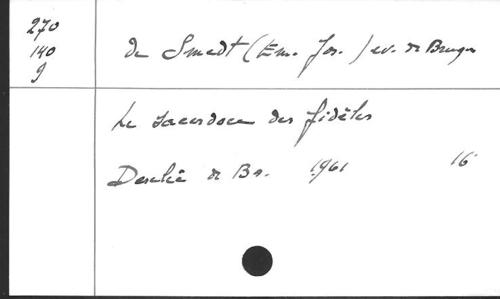 270
140
9
de Smedt (Em. Jos.) ev. de Bruges
Le sacerdoce des fidèles
Desclée de Br. 1961 16°